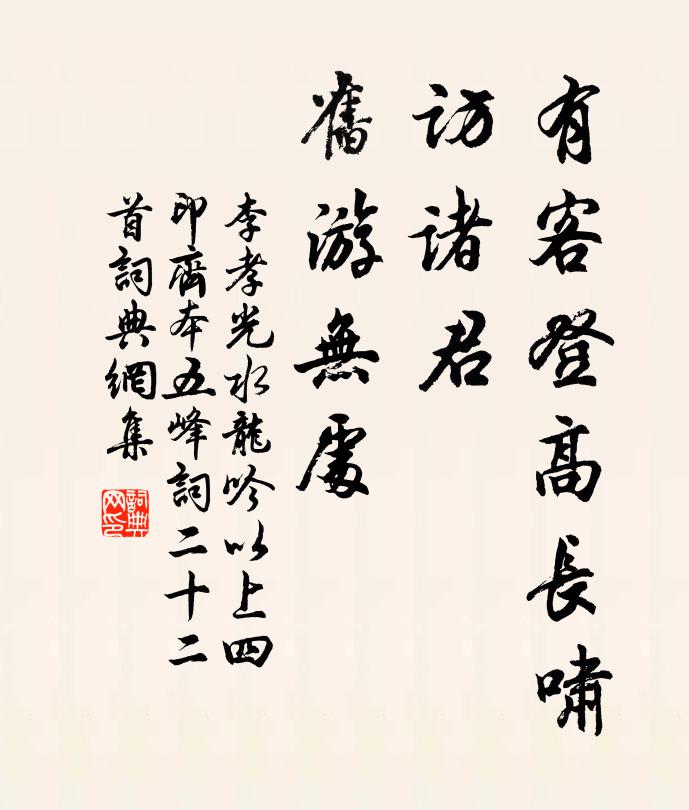 有客登高長嘯
訪諸君
舊游無處
李孝光水龍吟以上四
印齋本五峰詞二十二
首詞典網集
詞典网印